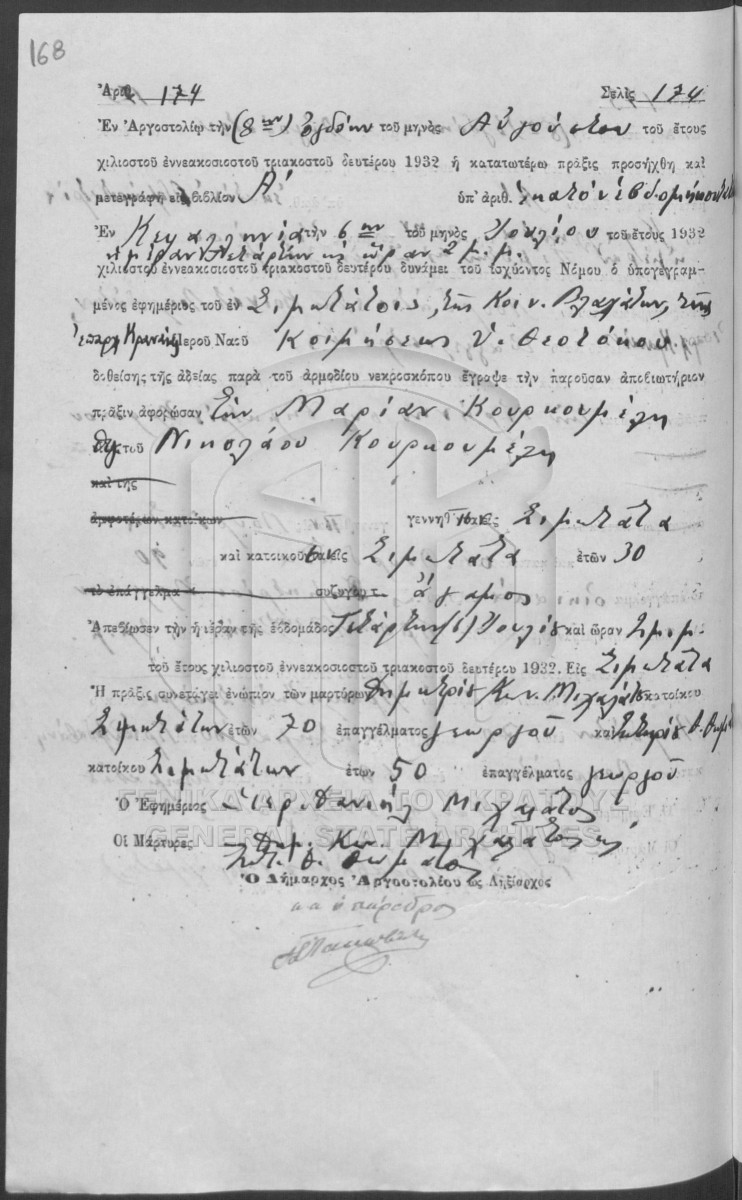 168
Ἀριθ. 174 Σελὶς 174
Ἐν Ἀργοστολίῳ τὴν (8ην) ὀγδόην τοῦ μηνὸς Αὐγούστου τοῦ ἔτους
χιλιοστοῦ ἐννεακοσιοστοῦ τριακοστοῦ δευτέρου 1932 ἡ κατωτέρω πρᾶξις προσήχθη καὶ
μετεγράφη εἰς βιβλίον Α΄ ὑπ᾿ ἀριθ. ἑκατὸν ἑβδομήκοντα
Ἐν Κεφαλληνίᾳ τὴν 6ην τοῦ μηνὸς Ἰουλίου τοῦ ἔτους 1932
ἡμέραν Τετάρτην κ ὥραν 2 μ.μ.
χιλιοστοῦ ἐννεακοσιοστοῦ τριακοστοῦ δευτέρου δυνάμει τοῦ ἰσχύοντος Νόμου ὁ ὑπογεγραμ-
μένος ἐφημέριος τοῦ ἐν Σιμωτάτοις, τῆς Κοιν. Βλαχάτων, τῆς
ἐπαρχ Κραναίας Ἱεροῦ Ναοῦ Κοιμήσεως Ὑ. Θεοτόκου
δοθείσης τῆς ἀδείας παρὰ τοῦ ἁρμοδίου νεκροσκόπου ἔγραψε τὴν παροῦσαν ἀποβιωτήριον
πρᾶξιν ἀφορῶσαν τὴν Μαρίαν Κουρκουμέλη
τοῦ Νικολάου Κουρκουμέλη
καὶ τῆς
ἀμφοτέρων κατοίκων γεννηθεῖσα εἰς Σιμωτάτα
καὶ κατοικοῦσα εἰς Σιμωτάτα ἐτῶν 30
τὸ ἐπάγγελμα συζύγου τ. ἄγαμος
Ἀπεβίωσεν τὴν ἡμέραν τῆς ἑβδομάδος Τετάρτην (6) Ἰουλίου καὶ ὥραν 2 μ.μ.
τοῦ ἔτους χιλιοστοῦ ἐννεακοσιοστοῦ τριακοστοῦ δευτέρου 1932. Εἰς Σιμωτάτα
Ἡ πρᾶξις συνετάγει ἐνώπιον τῶν μαρτύρων Δημητρίου Κων. Μιχαλάτου κατοίκου
Σιμωτάτων ἐτῶν 70 ἐπαγγέλματος γεωργοῦ καὶ Σωτηρίου Θ. Θωμά
κατοίκου Σιμωτάτων ἐτῶν 50 ἐπαγγέλματος γεωργοῦ
Ὁ Ἐφημέριος Ἱερ. Δανιὴλ Μιχαλάτος
ΓΕΝΙΚΑ ΑΡΧΕΙΑ ΤΟΥ ΚΡΑΤΟΥΣ
Οἱ Μάρτυρες Δημ. Κων. Μιχαλάτος
GENERAL STATE ARCHIVES
Σωτ. Θ. Θωμάτος
Ὁ Δήμαρχος Ἀργοστολίου ὡς Ληξίαρχος
κ α ὁ πάρεδρος